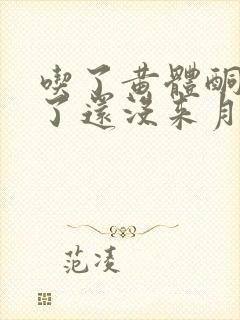 喫了黃體酮
了還沒来月
范凌